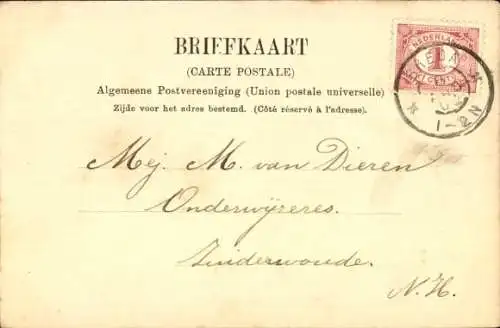 BRIEFKAART
(CARTE POSTALE)
Algemeene Postvereeniging (Union postale universelle)
Zijde voor het adres bestemd. (Côté réservé à l'adresse).
NEDERLAND
1
CENT
Mej. M. van Dieren
Onderwijzeres.
Zuiderwoude.
N.H.